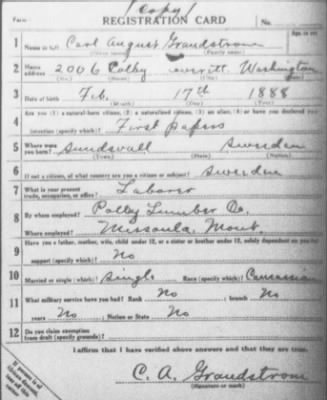 (Copy)
Form REGISTRATION CARD No.
1 Name in full Carl August Grandstrom Age, in yrs
(Given name) (Family name)
2 Home address 2006 Colby Everett, Washington
(No.) (Street) (City) (State)
3 Date of birth Feb. 17th 1888
(Month) (Day) (Year)
4 Are you (1) a natural-born citizen, (2) a naturalized citizen, (3) an alien, (4) or have you declared your
intention (specify which)? First papers
5 Where were you born? Sundsvall Sweden
(Town) (State) (Nation)
6 If not a citizen, of what country are you a citizen or subject? Sweden
7 What is your present trade, occupation, or office? Laborer
8 By whom employed? Polley Lumber Co.
Where employed? Missoula, Mont.
9 Have you a father, mother, wife, child under 12, or a sister or brother under 12, solely dependent on you for
support (specify which)? No
10 Married or single (which)? Single Race (specify which)? Caucasian
11 What military service have you had? Rank No ; branch No
years No ; Nation or State No
12 Do you claim exemption from draft (specify grounds)?
I affirm that I have verified above answers and that they are true.
C. A. Grandstrom
(Signature or mark)
If person is of African descent,